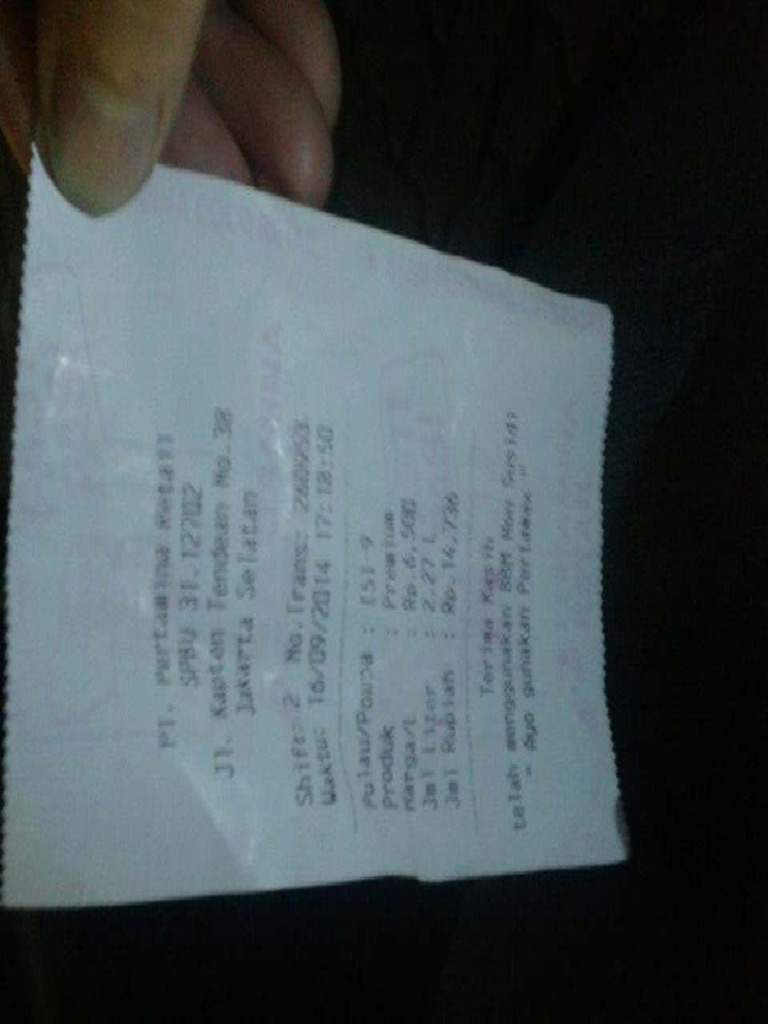 PT. Pertamina Retail
SPBU 31.12702
Jl. Kapten Tendean No.38
Jakarta Selatan
Shift: 2 No.Trans: 260953
Waktu: 16/09/2014 17:18:50
Pulau/Pompa :
Produk : Premium
Harga/L : Rp.6,500
Jml Liter : 2.27 L
Jml Rupiah : Rp.14,736
Terima Kasih
telah menggunakan BBM Non Subsidi
" Ayo gunakan Pertamax "